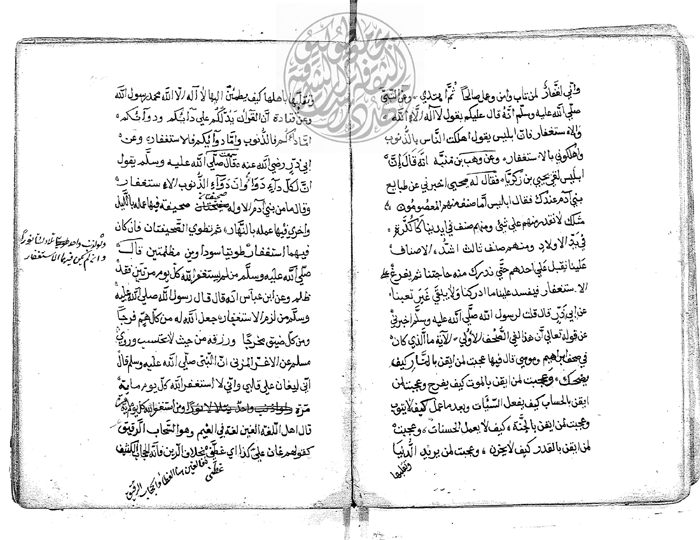 واني لغفار لمن تاب وامن وعمل صالحا ثم اهتدى وعن النبي
صلى الله عليه وسلم انه قال عليكم بقول لا اله الا الله
والاستغفار فان ابليس يقول اهلكت الناس بالذنوب
واهلكوني بالاستغفار وعن وهب بن منبه انه قال ان
ابليس لقي يحيى بن زكريا فقال له يحيى اخبرني عن طبايع
بني آدم عندك فقال ابليس اما صنف منهم المعصومون
مثلك لا نقدر منهم على شيء ومنهم صنف في ايدينا كالكرة
في يد الاولاد ومنهم صنف ثالث اشد الاصناف
علينا نقبل على احدهم حتى ندرك منه حاجتنا ثم يفزع
الاستغفار فيفسد علينا ما ادركنا ولا يبقى غير تعبنا
عن ابي ذر قال قلت لرسول الله صلى الله عليه وسلم اخبرني
عن قوله تعالى ان هذا لفي الصحف الاولى الآية ما الذي كان
في صحف ابراهيم وموسى قال فيها عجبت لمن ايقن بالنار كيف
يضحك وعجبت لمن ايقن بالموت كيف يفرح وعجبت لمن
ايقن بالحساب كيف يفعل السيئات وبعد ما عمل كيف لا يتوب
وعجبت لمن ايقن بالجنة كيف لا يعمل الحسنات وعجبت
لمن ايقن بالقدر كيف لا يحزن وعجبت لمن يريد الدنيا
وتقلبها
وتقلبها باهلها كيف يطمئن اليها لا اله الا الله محمد رسول الله
وعن قتادة ان القرآن يدلكم على دائكم ودوائكم
اما داؤكم فالذنوب واما دواؤكم فالاستغفار وعن
ابي ذر رضي الله عنه قال صلى الله عليه وسلم يقول
ان لكل داء دواء وان دواء الذنوب الاستغفار
وقال ما من بني آدم الا وله صحيفتان صحيفة فيها عمله بالليل
واخرى فيها عمله بالنهار ثم تطوى الصحيفتان فان كان
فيهما استغفار طويتا سوداء ومن مظلمتين قال
صلى الله عليه وسلم من لم يستغفر الله كل يوم مرتين فقد
ظلم وعن ابن عباس انه قال قال رسول الله صلى الله عليه
وسلم من لزم الاستغفار جعل الله له من كل هم فرجا
ومن كل ضيق مخرجا ورزقه من حيث لا يحتسب وروى
مسلم عن الاغر المزني ان النبي صلى الله عليه وسلم قال
انه ليغان على قلبي واني لاستغفر الله كل يوم مائة
مرة
قال اهل اللغة الغين لغة في الغيم وهو السحاب الرقيق
كقولهم غان على كذا اي غطى بخلاف الرين فانه الحجاب الكثيف